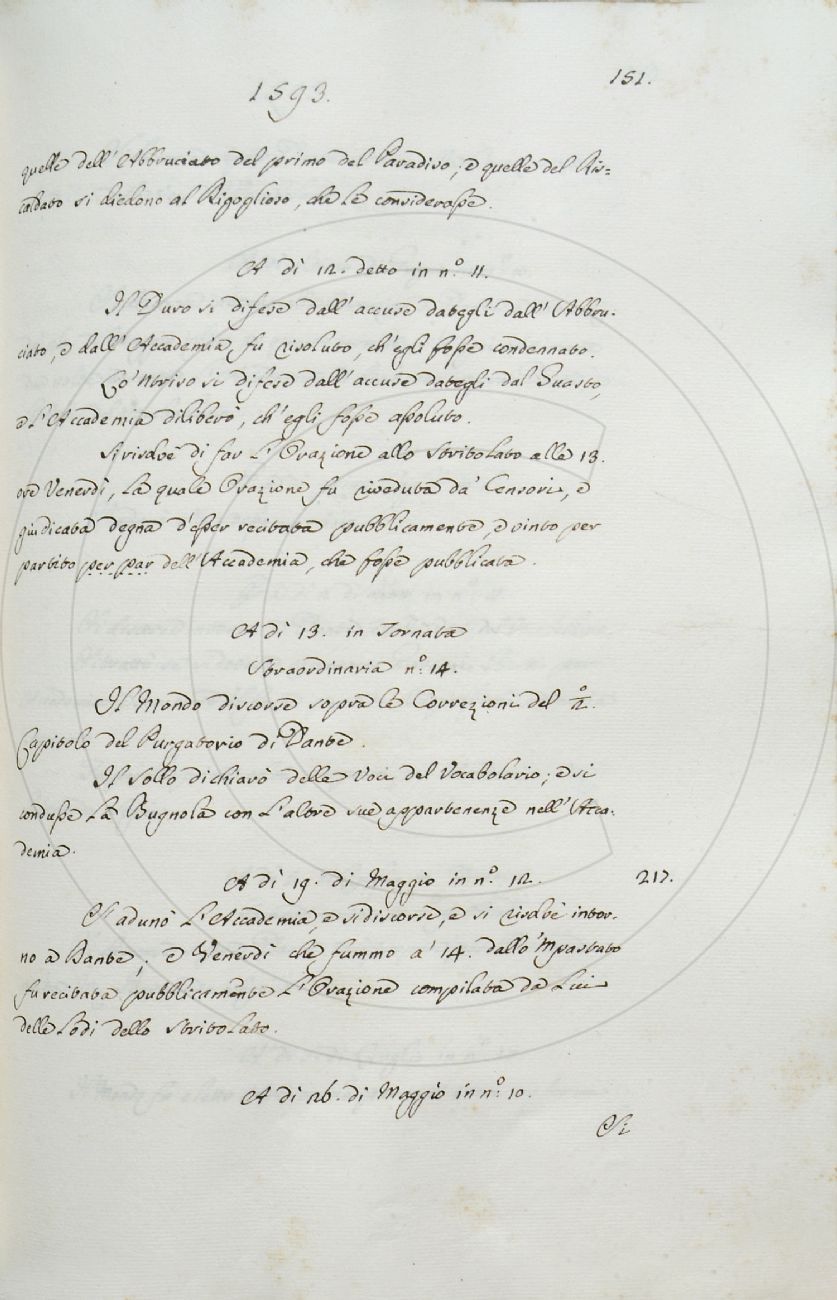 151.
1593.
quelle dell'Abbruciato del primo del Paradiso; e quelle del Ris=
caldato si diedono al Rigoglioso, che le considerasse.
A dì 12. detto in n.° 11.
Il Duro si difese dall'accuse dategli dall'Abbru-
ciato, e dall'Accademia fu risoluto, ch'egli fosse condennato.
Lo 'Ntriso si difese dall'accuse dategli dal Guasto,
e l'Accademia diliberò, ch'egli fosse assoluto.
Si risolvè di far l'Orazione allo Stritolato alle 13.
ore Venerdì, la quale Orazione fu riveduta da' Censori, e
giudicata degna d'esser recitata pubblicamente, e vinto per
partito per par dell'Accademia, che fosse pubblicata.
A dì 13. in Tornata
Straordinaria n.° 14.
Il Mondo discorse sopra le Correzioni del
Capitolo del Purgatorio di Dante.
Il Sollo dichiarò delle Voci del Vocabolario; e si
condusse la Bugnola con l'altre sue appartenenze nell'Acca-
demia.
A dì 19. di Maggio in n.° 12. 217.
Si adunò l'Accademia, e si discorse, e si risolvè intor-
no a Dante; e Venerdì che fummo a' 14. dallo 'Mpastato
fu recitata pubblicamente l'Orazione compilata da Lui
delle Lodi dello Stritolato.
A dì 26. di Maggio in n.° 10.
Si